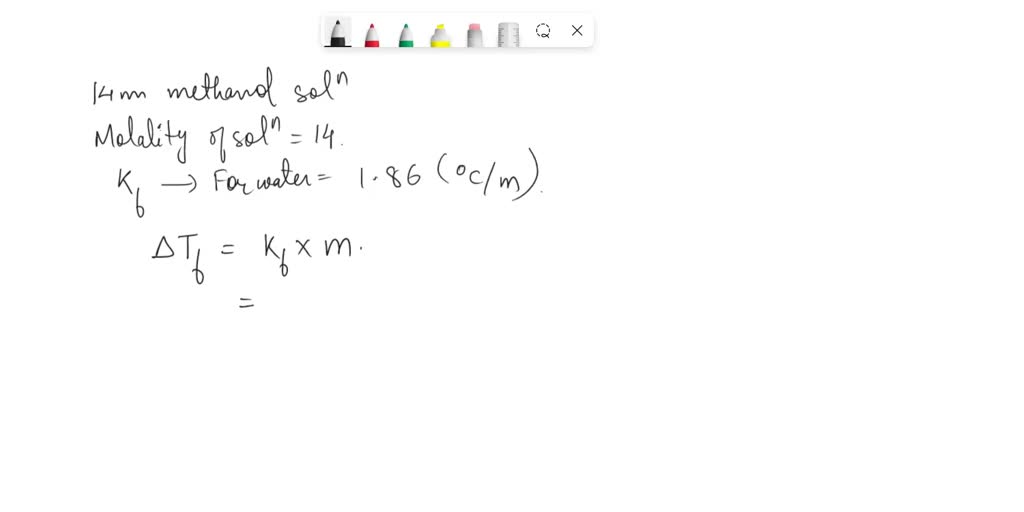 14m methanol solⁿ
Molality of solⁿ = 14.
K_f → For water = 1.86 (°C/m).
ΔT_f = K_f × m.
=